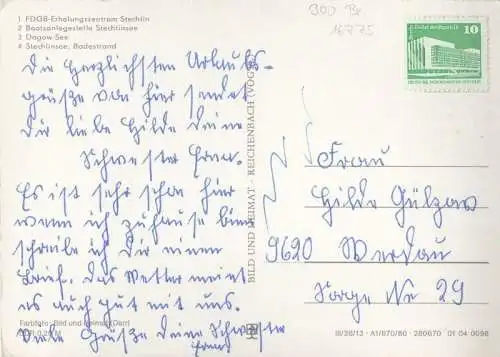 1 FDGB-Erholungszentrum Stechlin
2 Bootsanlegestelle Stechlinsee
3 Dagow-See
4 Stechlinsee, Badestrand
Die herzlichsten Urlaubs-
grüße von hier sendet
Dir liebe Hilde Deine
Schwester Erna.
Es ist sehr schön hier
wenn ich zuhause bin
schreibe ich Dir einen
Brief. Das Wetter meint
es auch gut mit uns.
Viele Grüße Deine Schwester
Erna
Farbfoto: Bild und Heimat (Darr)
0,20 M
BILD UND HEIMAT · REICHENBACH (VOGTL)
16775
10
Frau
Hilde Gülzow
9620 Werdau
Sorge Nr 29
III/26/13 · A1/670/80 · 280670 01 04 0098